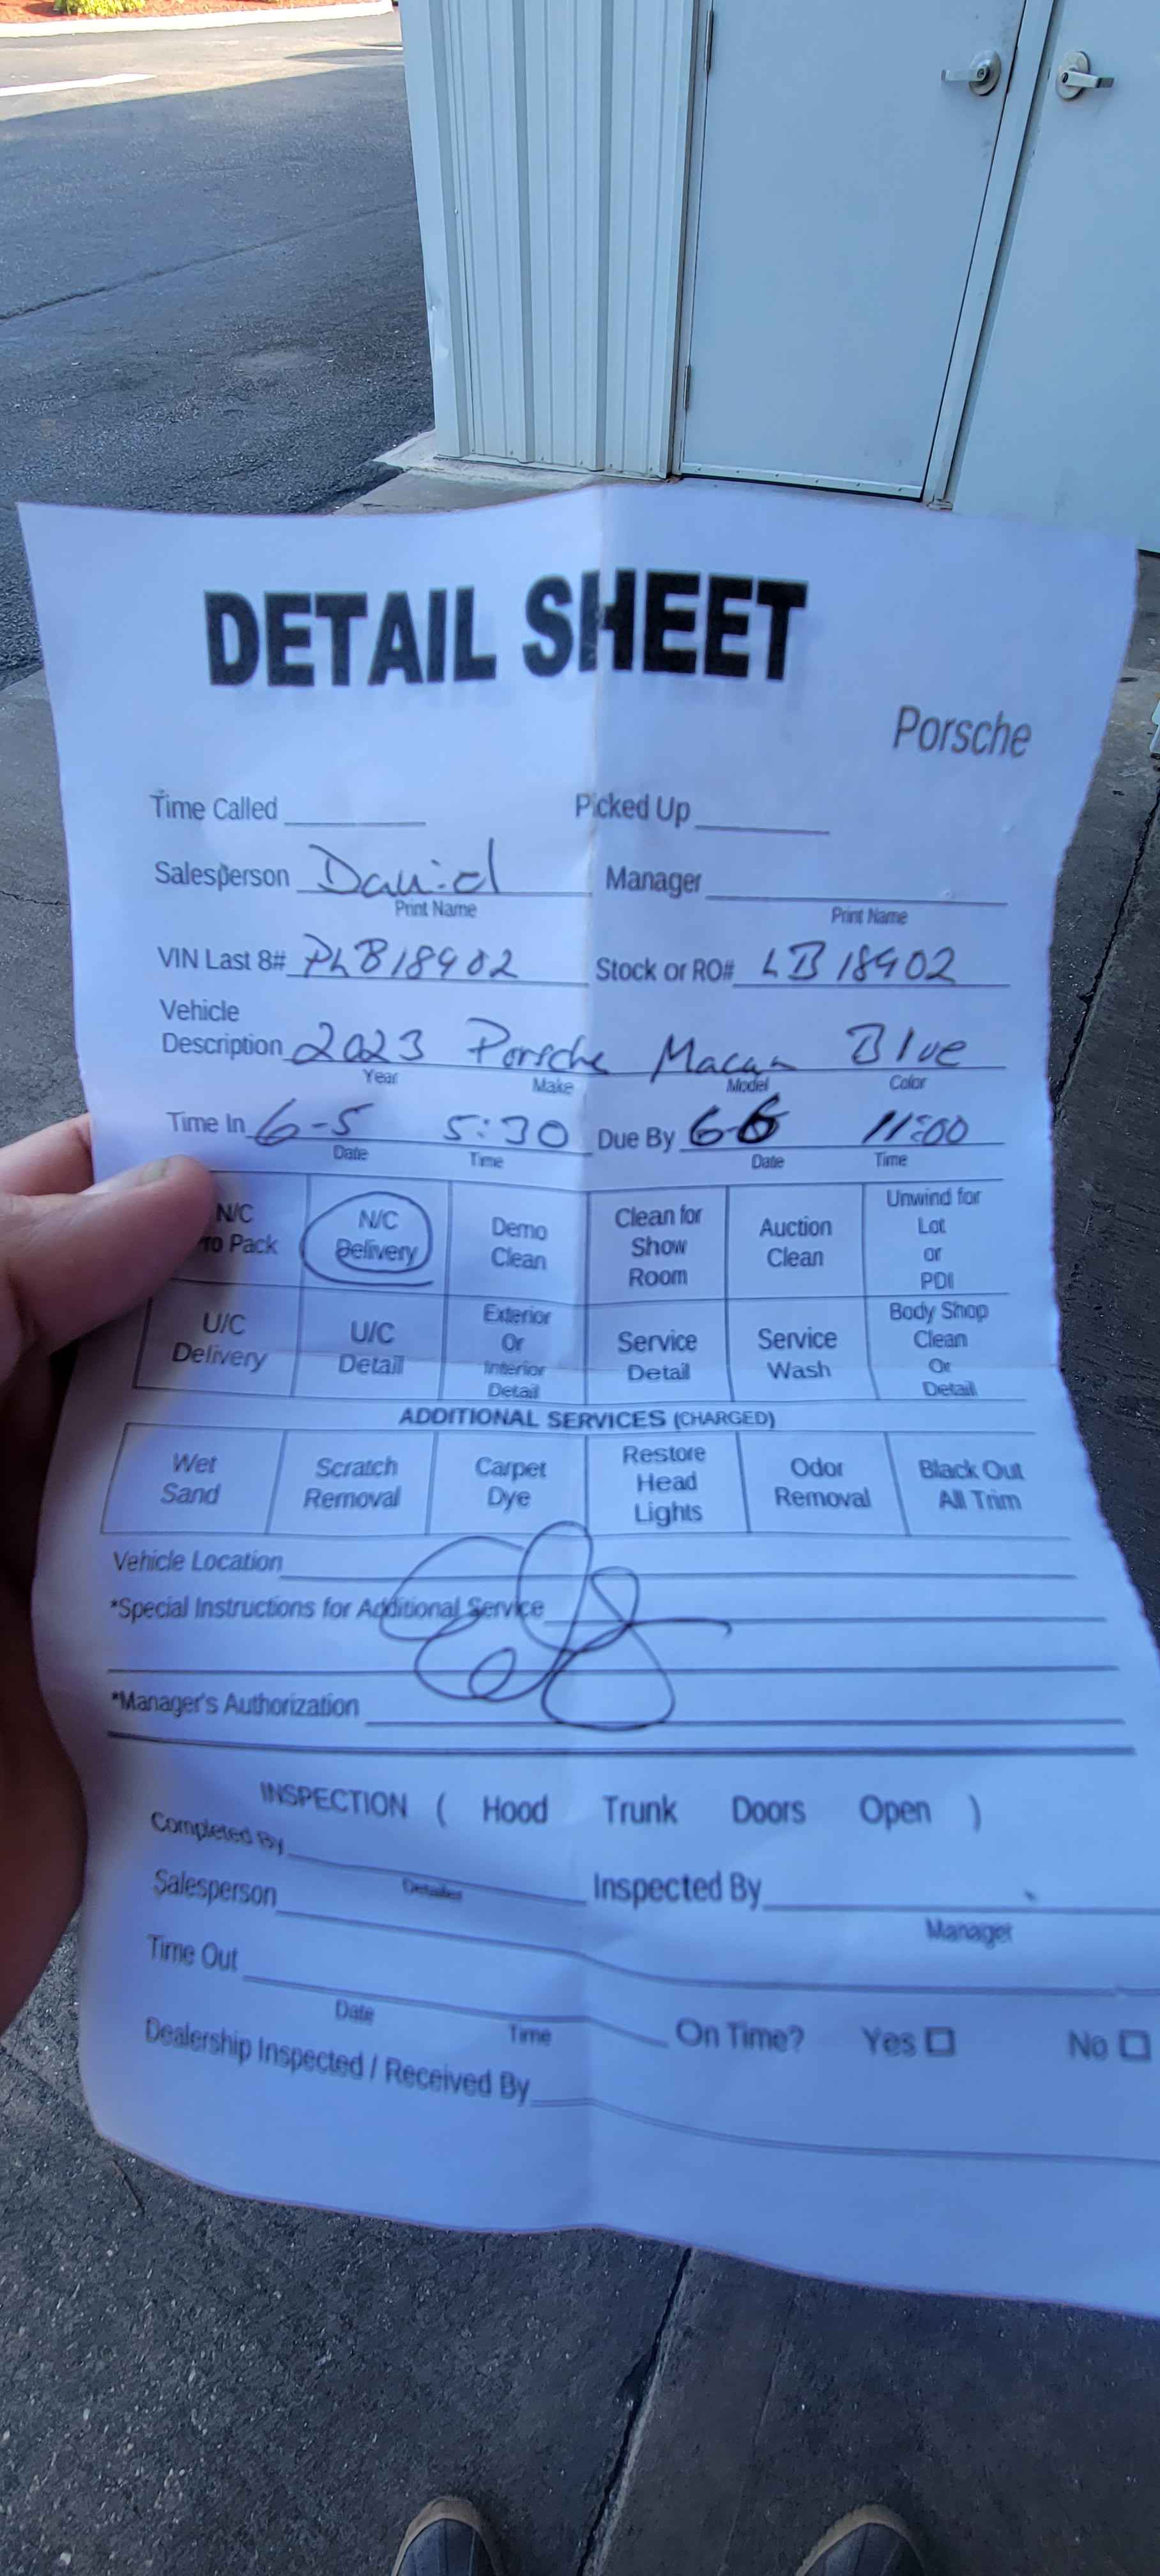 DETAIL SHEET
Porsche
Time Called Picked Up
Salesperson David Manager
Print Name Print Name
VIN Last 8# PLB18902 Stock or RO# LB18902
Vehicle
Description 2023 Porsche Macan Blue
Year Make Model Color
Time In 6-5 5:30 Due By 6-6 11:00
Date Time Date Time
N/C to Pack
N/C Delivery
Demo Clean
Clean for Show Room
Auction Clean
Unwind for Lot or PDI
U/C Delivery
U/C Detail
Exterior Or Interior Detail
Service Detail
Service Wash
Body Shop Clean Or Detail
ADDITIONAL SERVICES (CHARGED)
Wet Sand
Scratch Removal
Carpet Dye
Restore Head Lights
Odor Removal
Black Out All Trim
Vehicle Location
*Special Instructions for Additional Service
*Manager's Authorization
INSPECTION ( Hood Trunk Doors Open )
Completed By Inspected By
Detailer Manager
Salesperson
Time Out On Time? Yes No
Date Time
Dealership Inspected / Received By